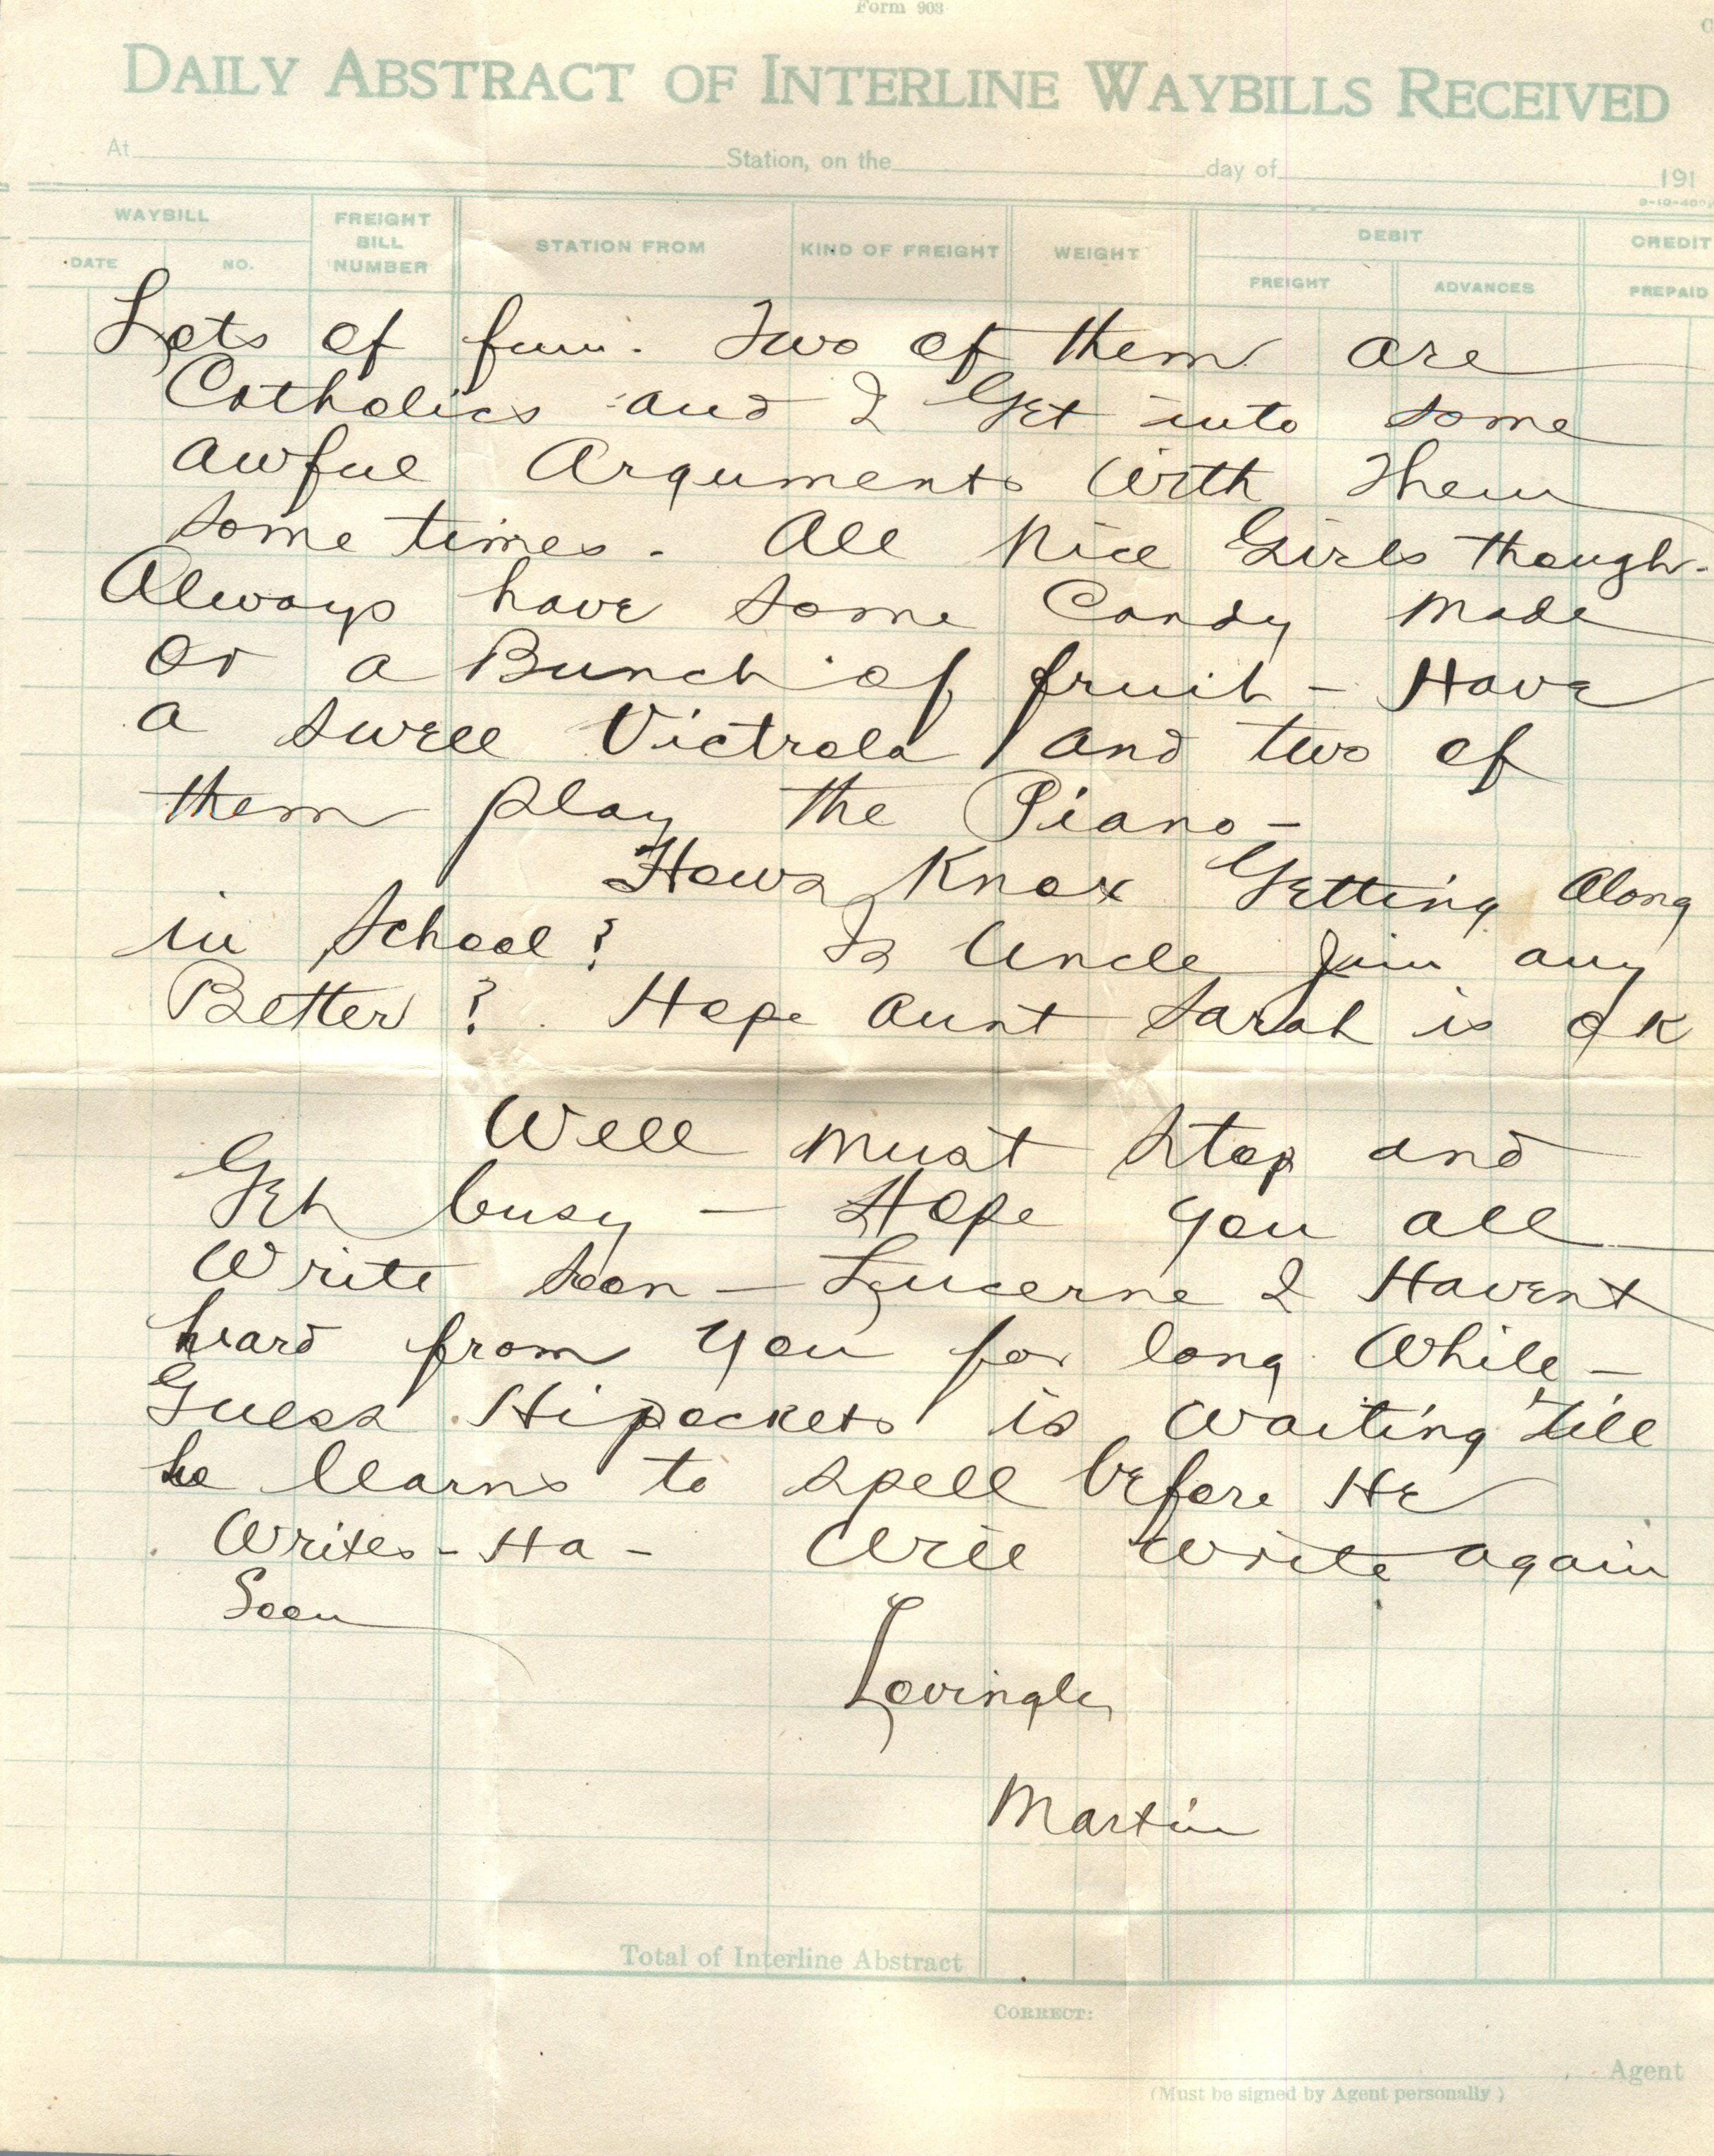 Form 903
DAILY ABSTRACT OF INTERLINE WAYBILLS RECEIVED
At Station, on the day of 191
WAYBILL FREIGHT BILL NUMBER STATION FROM KIND OF FREIGHT WEIGHT DEBIT CREDIT
DATE NO. FREIGHT ADVANCES PREPAID
Lots of fun. Two of them are
Catholics and I Get into some
awful Arguments With Them
some times. All Nice Girls though.
Always have some Candy Made
Or a Bunch of fruit - Have
a swell Victrola and two of
them play the Piano -
Hows Knox Getting Along
in School? Is Uncle Jim any
Better? Hope Aunt Sarah is OK
Well must stop and
Get busy - Hope you all
Write soon - Lucerne I Havent
heard from you for long While -
Guess Hipockets is Waiting 'till
he learns to spell before He
Writes - Ha - Will write again
Soon
Lovingly
Martin
Total of Interline Abstract
CORRECT:
Agent
(Must be signed by Agent personally)